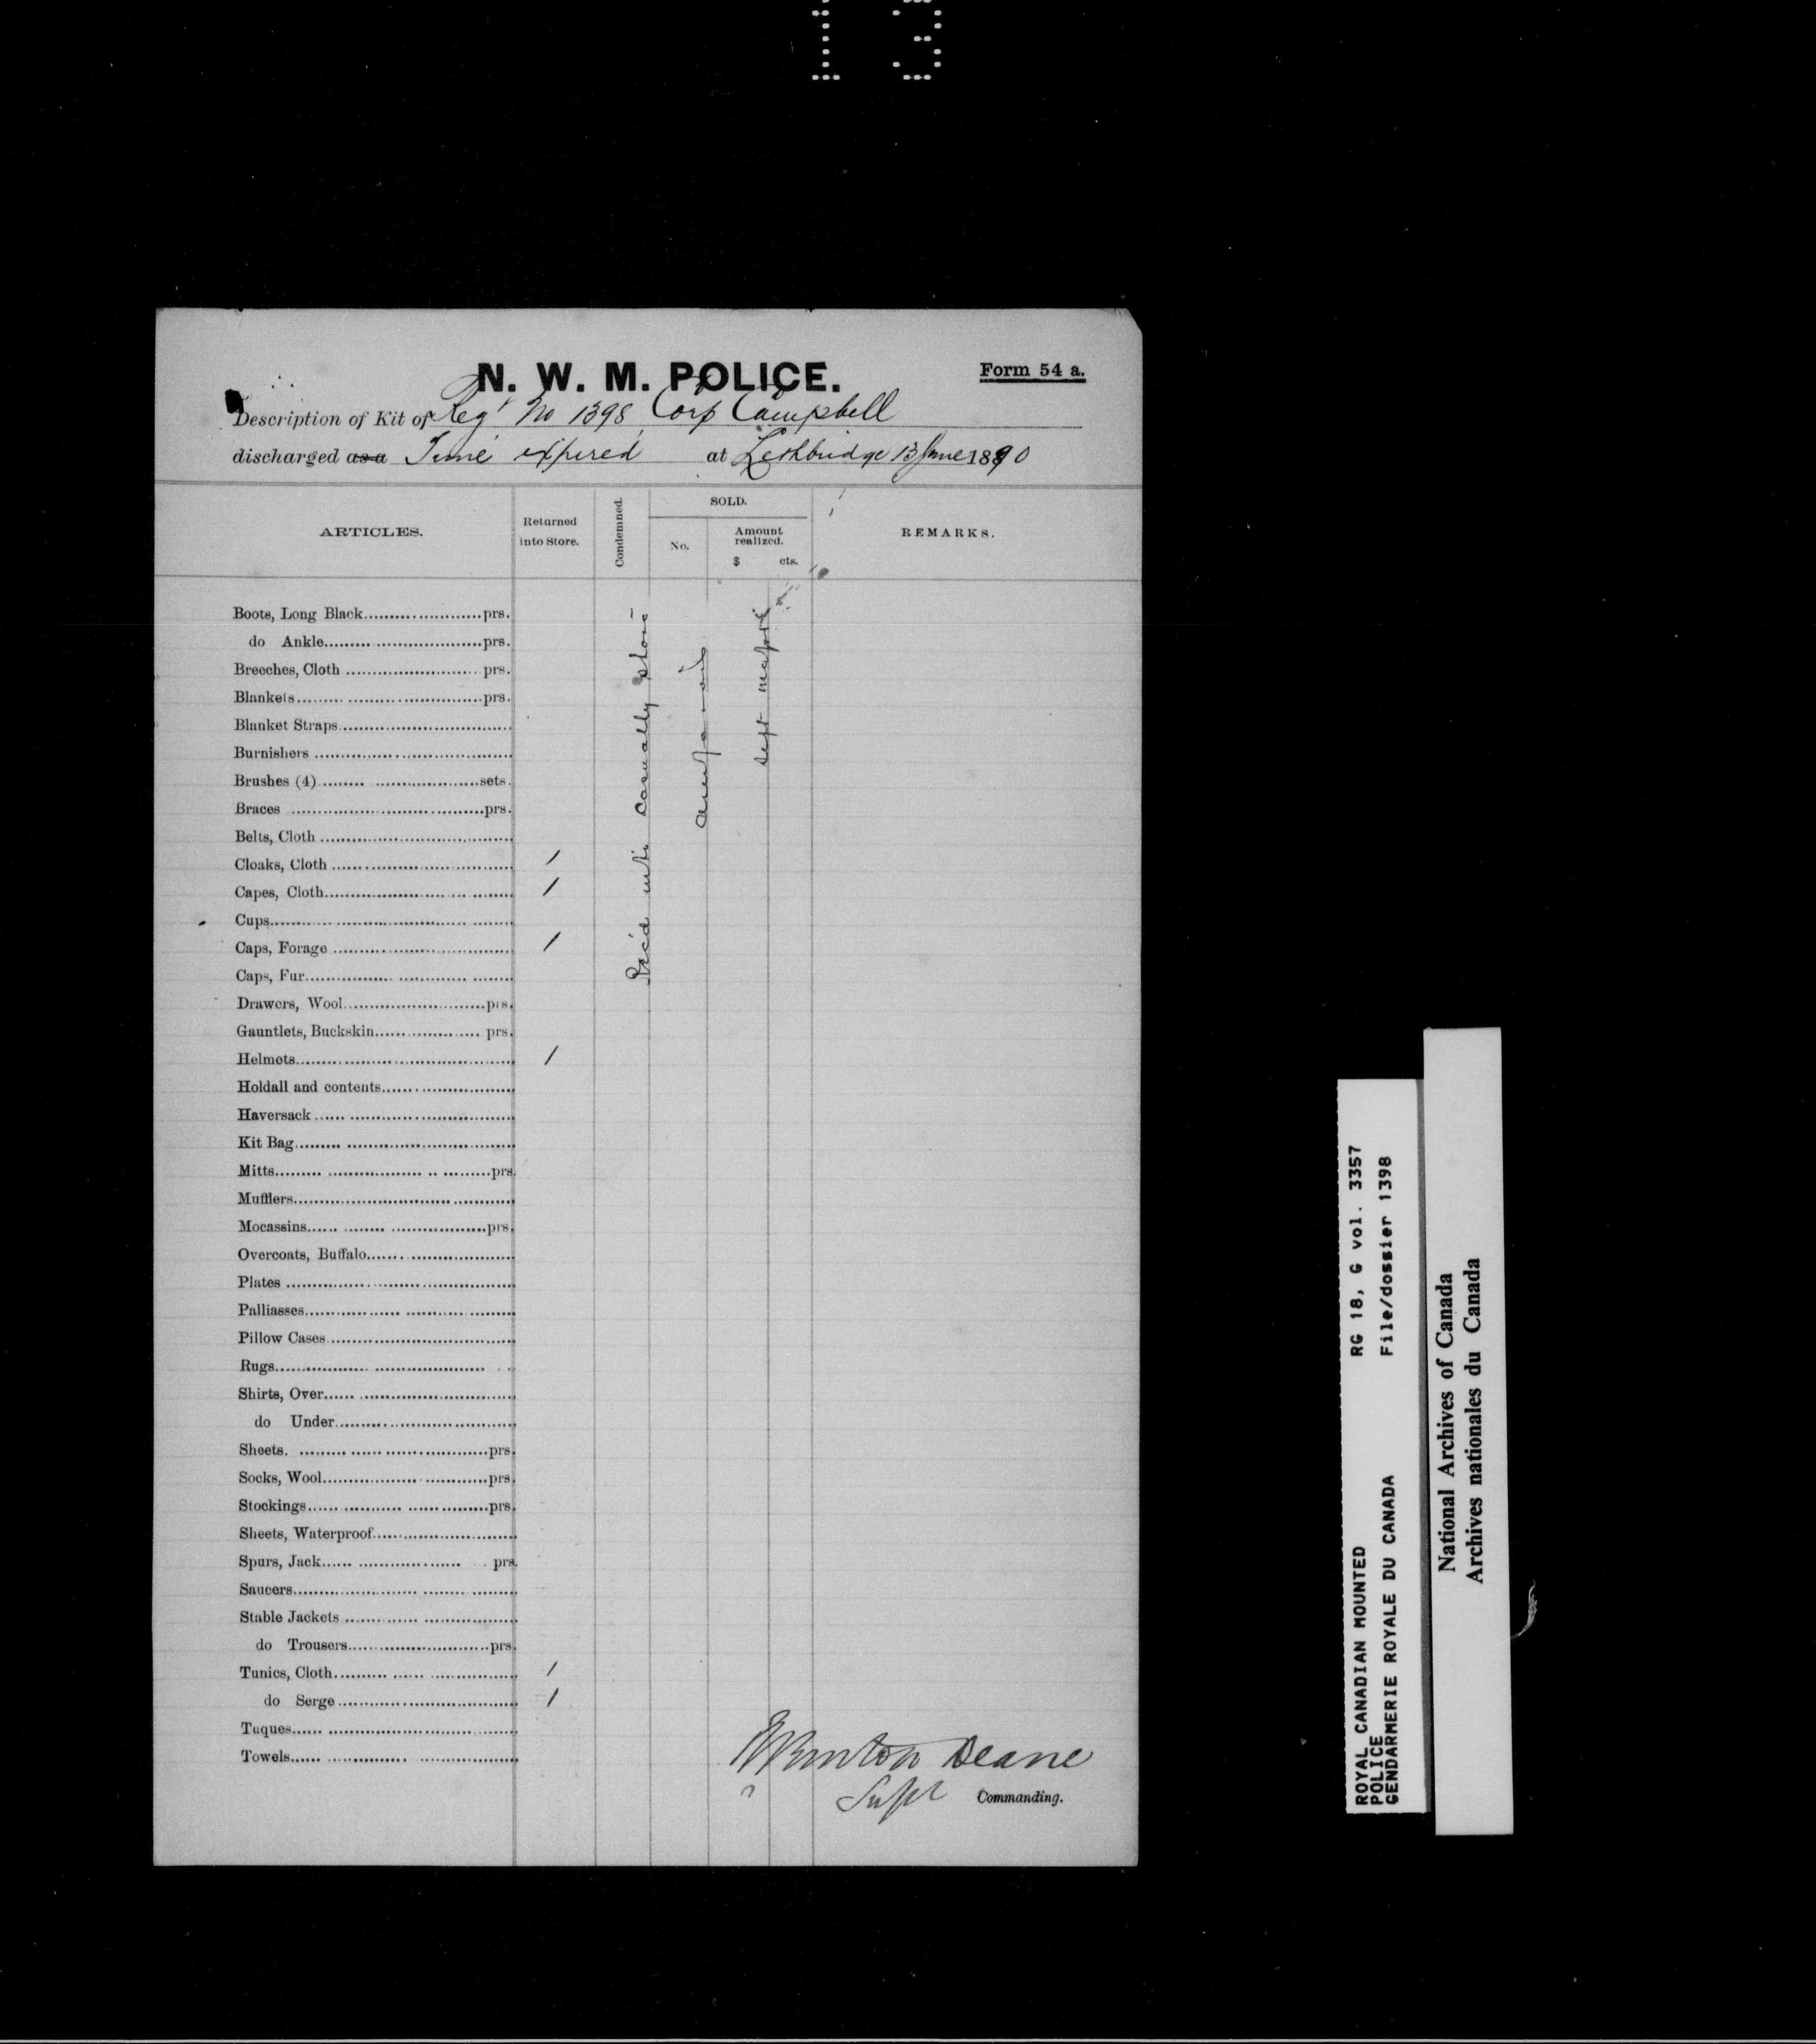 13
N. W. M. POLICE.
Form 54 a.
Description of Kit of Regt No 1398 Corp Campbell
discharged as a Time expired at Lethbridge 13 June 1890
ARTICLES.
Returned into Store.
Condemned.
SOLD.
No.
Amount realized.
$ cts.
REMARKS.
Boots, Long Black prs.
do Ankle prs.
Breeches, Cloth prs.
Blankets prs.
Blanket Straps
Burnishers
Brushes (4) sets.
Braces prs.
Belts, Cloth
Cloaks, Cloth 1
Capes, Cloth 1
Cups
Caps, Forage 1
Caps, Fur
Drawers, Wool prs.
Gauntlets, Buckskin prs.
Helmets 1
Holdall and contents
Haversack
Kit Bag
Mitts prs.
Mufflers
Mocassins prs.
Overcoats, Buffalo
Plates
Palliasses
Pillow Cases
Rugs
Shirts, Over
do Under
Sheets. prs.
Socks, Wool prs.
Stockings prs.
Sheets, Waterproof
Spurs, Jack prs.
Saucers
Stable Jackets
do Trousers prs.
Tunics, Cloth 1
do Serge 1
Tuques
Towels
Rec'd into casually store
Sept
Burton Deane
Supt Commanding.
ROYAL CANADIAN MOUNTED POLICE RG 18, G vol. 3357
GENDARMERIE ROYALE DU CANADA File/dossier 1398
National Archives of Canada
Archives nationales du Canada